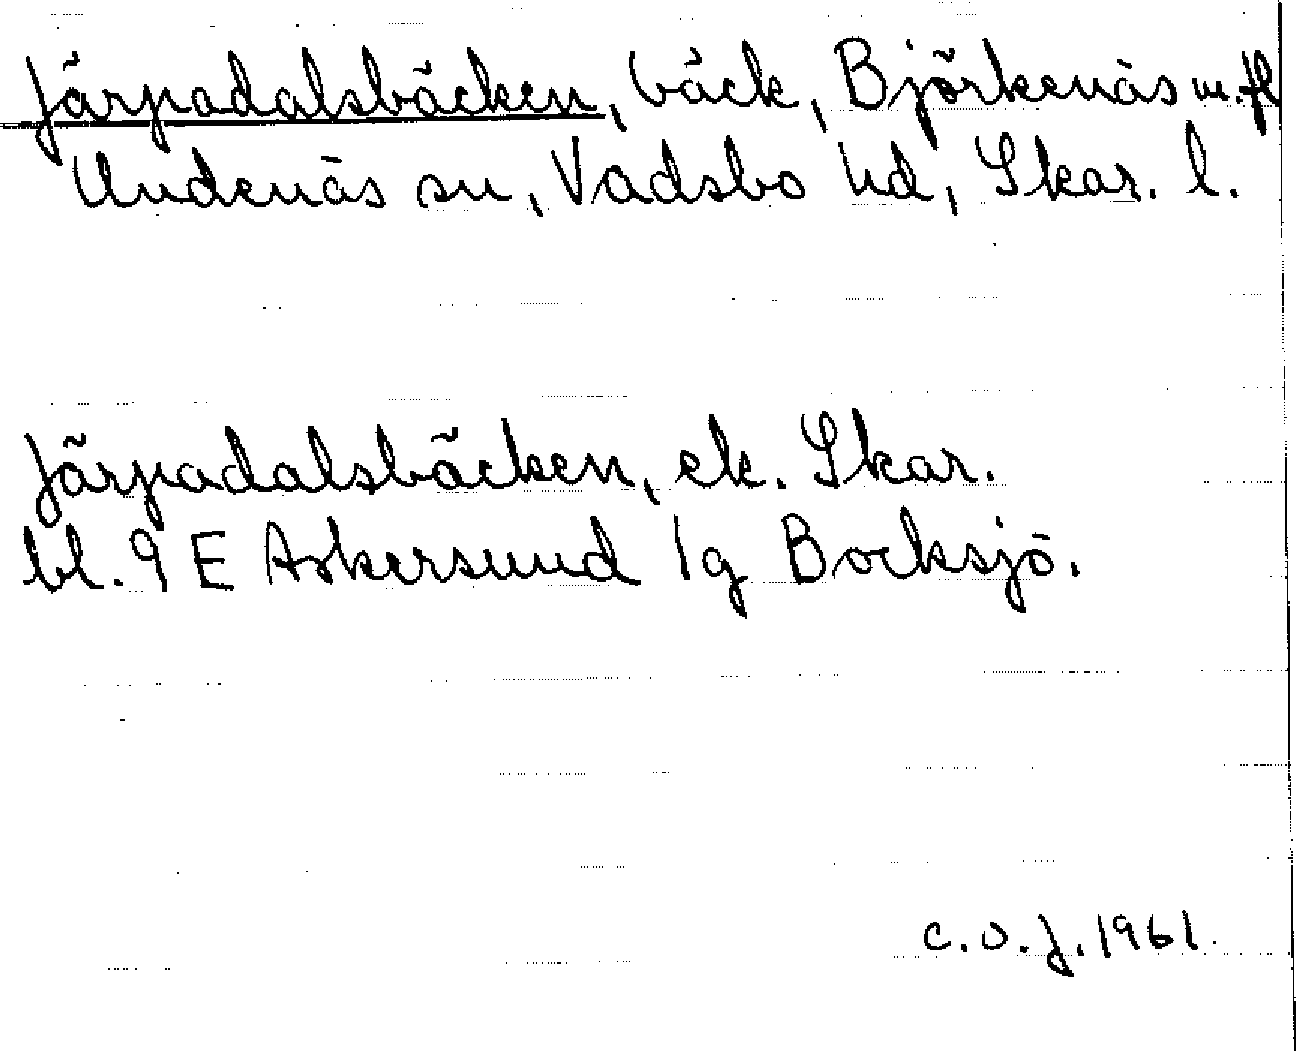 Järpadalsbäcken, bäck, Björkenäs m.fl
Undenäs sn, Vadsbo hd, Skar. l.
Järpadalsbäcken, ek. Skar.
bl. 9 E Askersund 1g Bocksjö.
C.O.J. 1961.